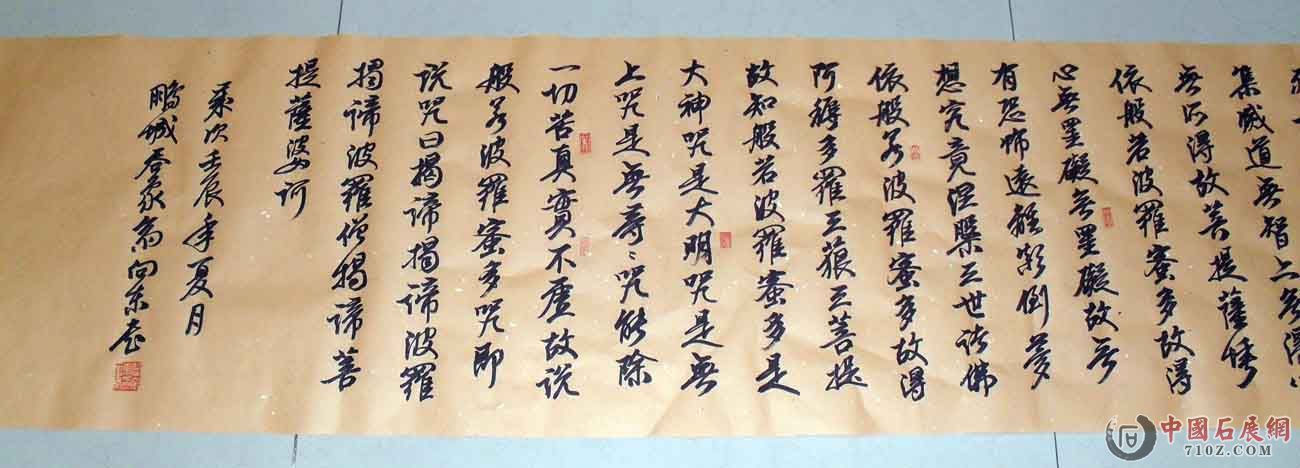 集滅道無智亦無得以
無所得故菩提薩埵
依般若波羅蜜多故得
心無罣礙無罣礙故無
有恐怖遠離顛倒夢
想究竟涅槃三世諸佛
依般若波羅蜜多故得
阿耨多羅三藐三菩提
故知般若波羅蜜多是
大神咒是大明咒是無
上咒是無等〻咒能除
一切苦真實不虛故说
般若波羅蜜多咒即
说咒曰揭諦揭諦波羅
揭諦波羅僧揭諦菩
提薩婆訶
歲次壬辰年夏月
鵬城向东書
中國石展網
710Z.COM